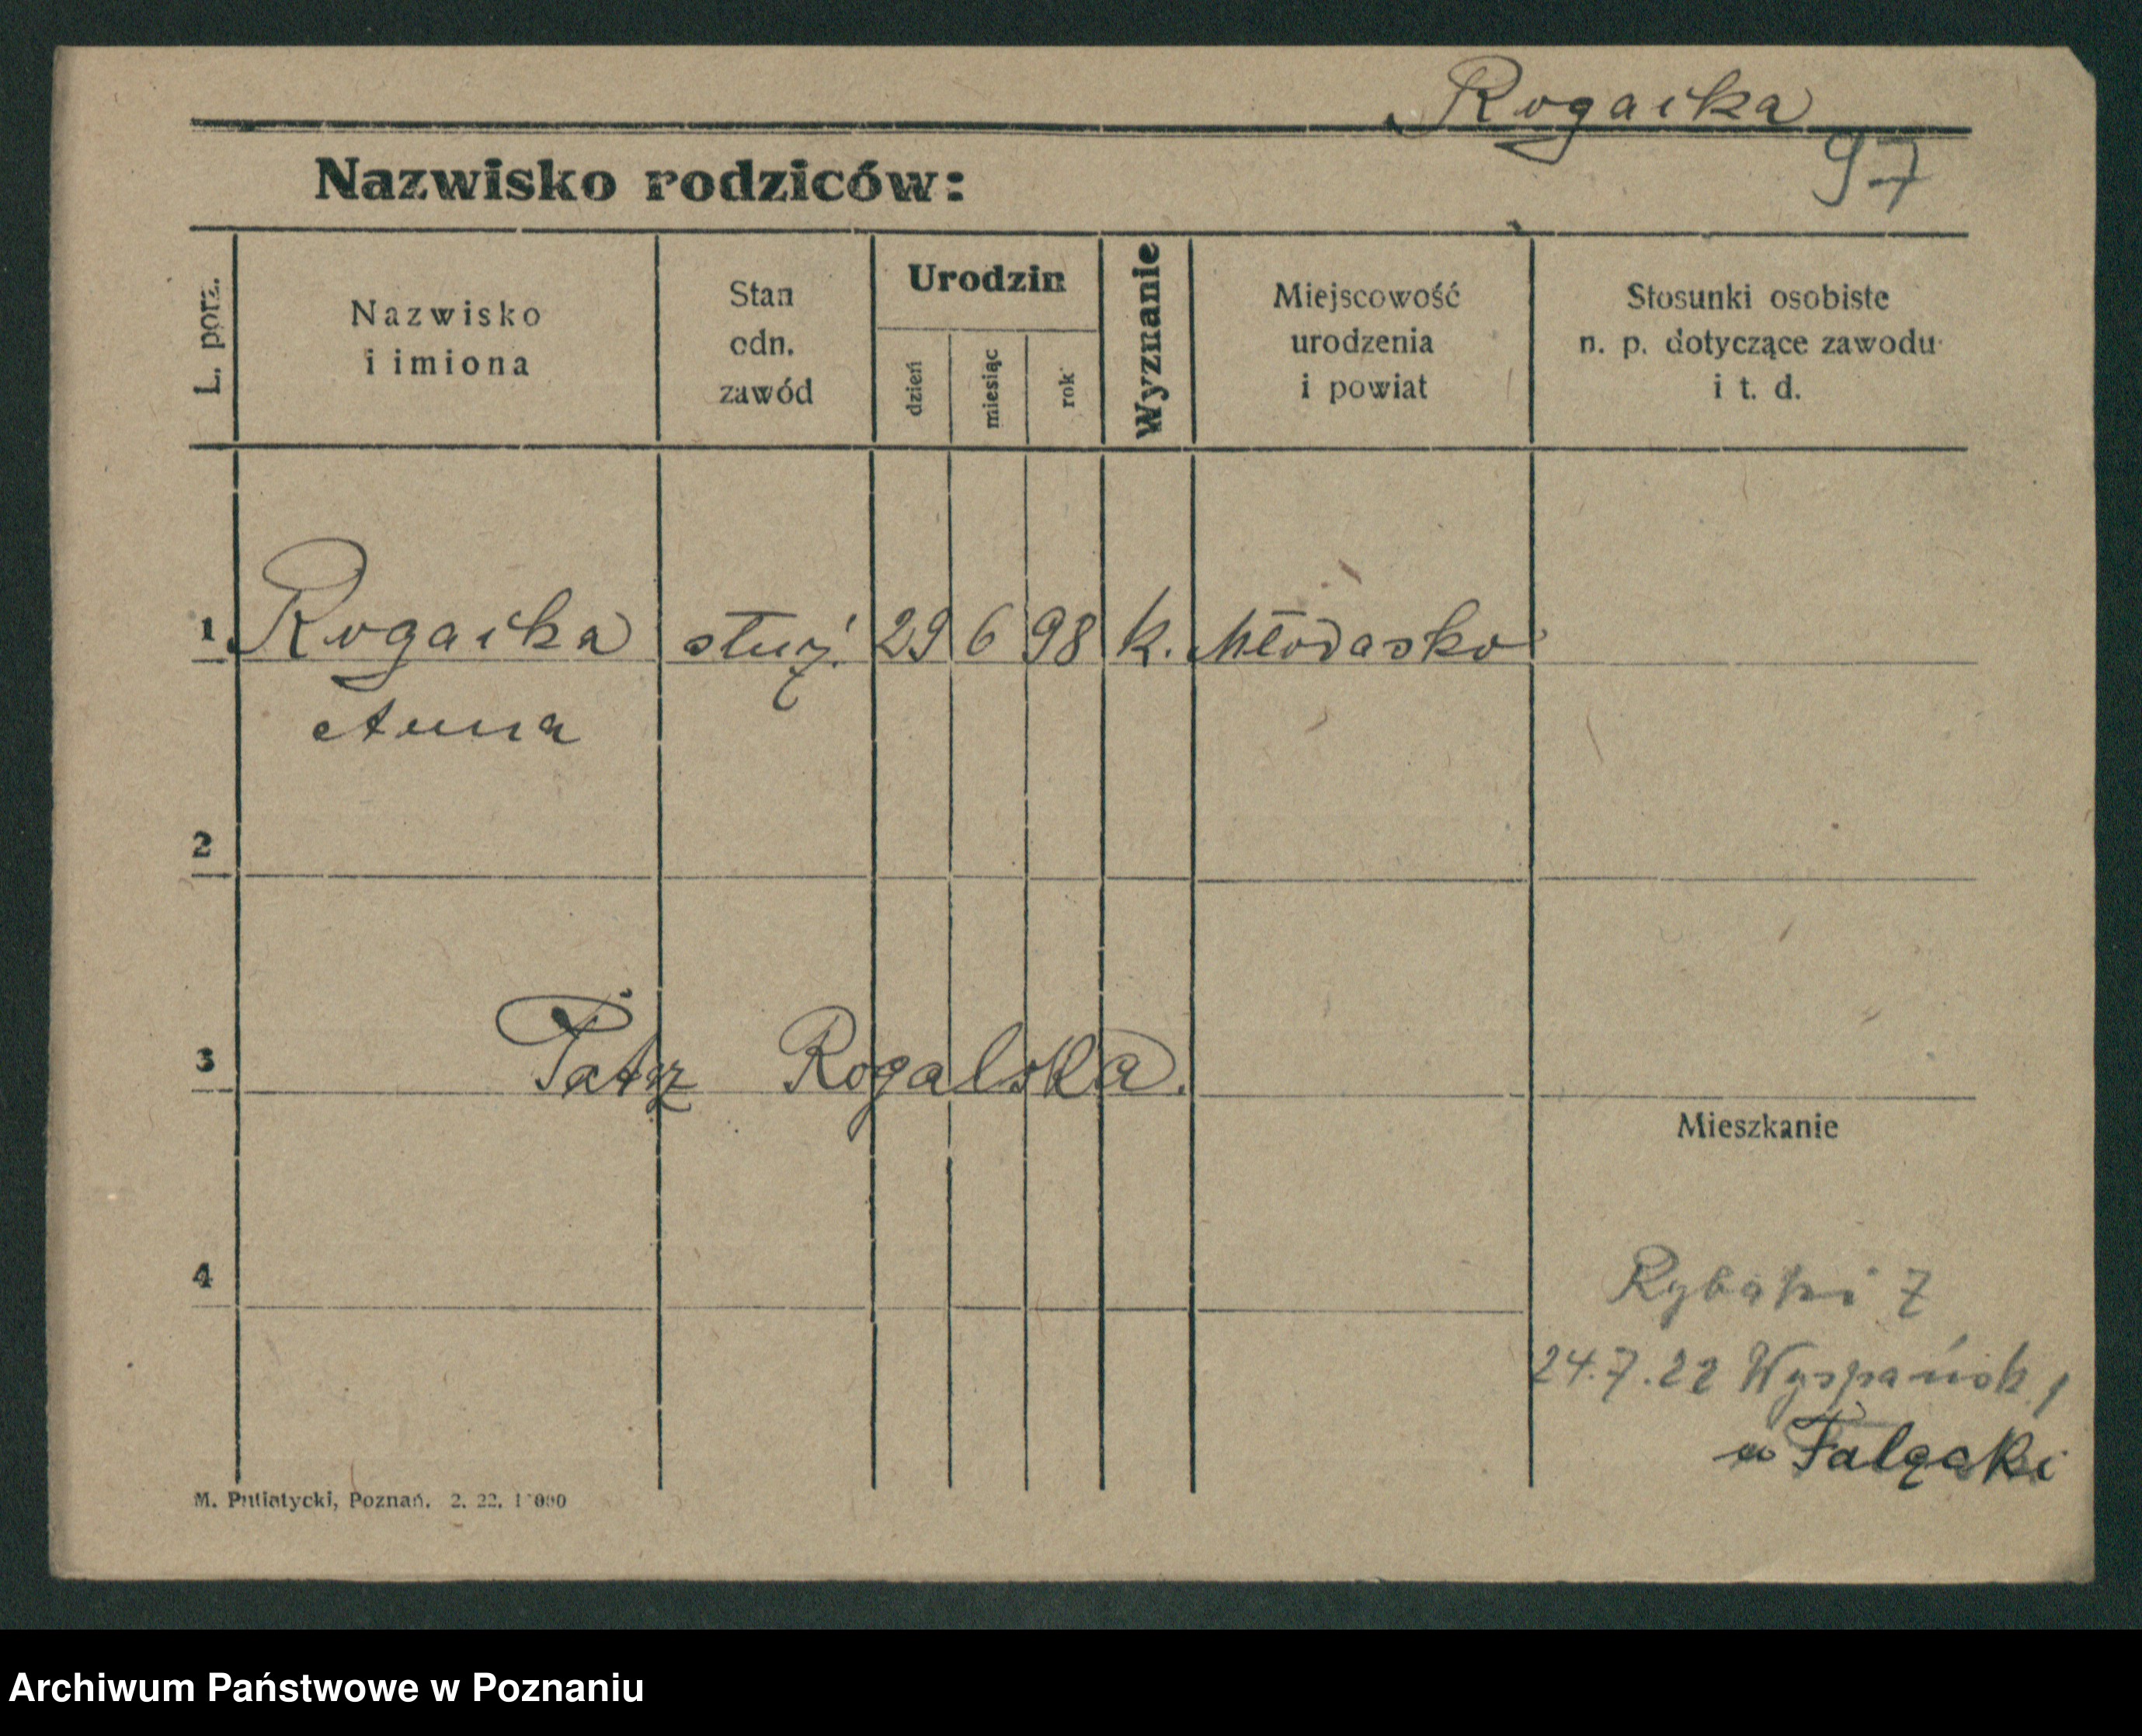 Rogacka
97
Nazwisko rodziców:
L. porz.
Nazwisko
i imiona
Stan
odn.
zawód
Urodzin
dzień
miesiąc
rok
Wyznanie
Miejscowość
urodzenia
i powiat
Stosunki osobiste
n. p. dotyczące zawodu
i t. d.
1 Rogacka służ. 29 6 98 k. Młodasko
Anna
2
3 Patrz Rogalska.
Mieszkanie
4
Rybaki 7
24.7.22 Wyspańsk 1
u Falącki
M. Putiatycki, Poznań. 2. 22.
Archiwum Państwowe w Poznaniu